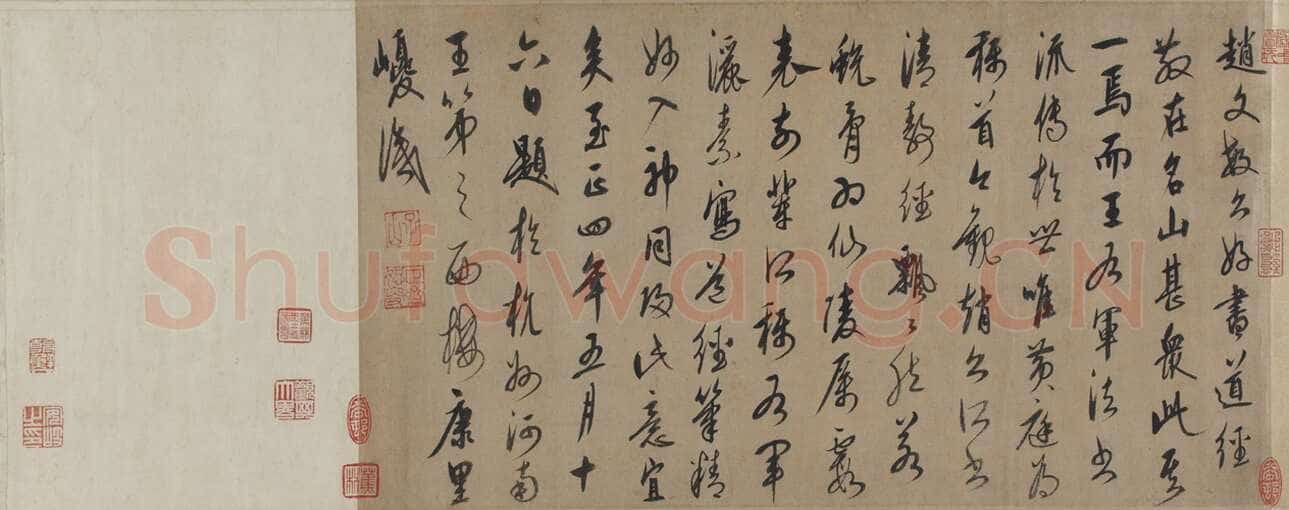 趙文敏公好書道經
散在名山甚衆此其
一焉而王右軍法書
流傳於世唯黃庭為
稱首今觀趙公所書
清静經飄〻然若
蛻骨為仙陵厲霞
表前輩所稱右軍
灑素寫道經筆精
妙入神同此意宜
矣至正四年五月十
六日題於杭州河南
王第之西樓康里
巎識
Shufawang.CN